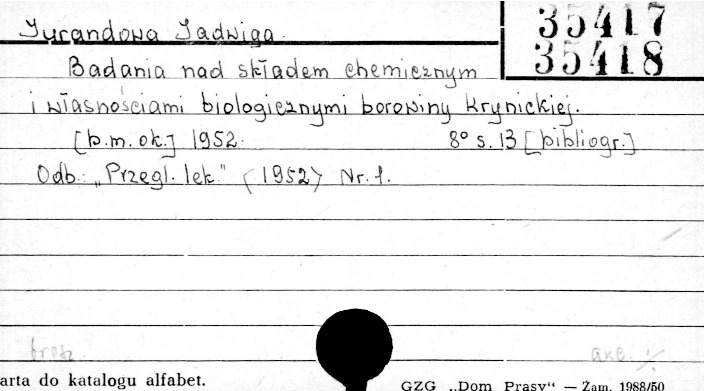 Jurandowa Jadwiga.
35417
35418
Badania nad składem chemicznym
i własnościami biologicznymi borowiny Krynickiej.
[b.m.ok.] 1952. 8° s. 13 [bibliogr.]
Odb. "Przegl. lek." (1952) Nr. 1.
brosz. akc. ./.
arta do katalogu alfabet. GZG „Dom Prasy" — Zam. 1988/50